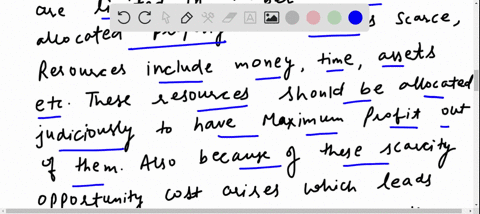 are
allocated scarce,
Resources include money, time, assets
etc. These resources should be allocated
judiciously to have Maximum Profit out
of them. Also because of these scarcity
opportunity cost arises which leads